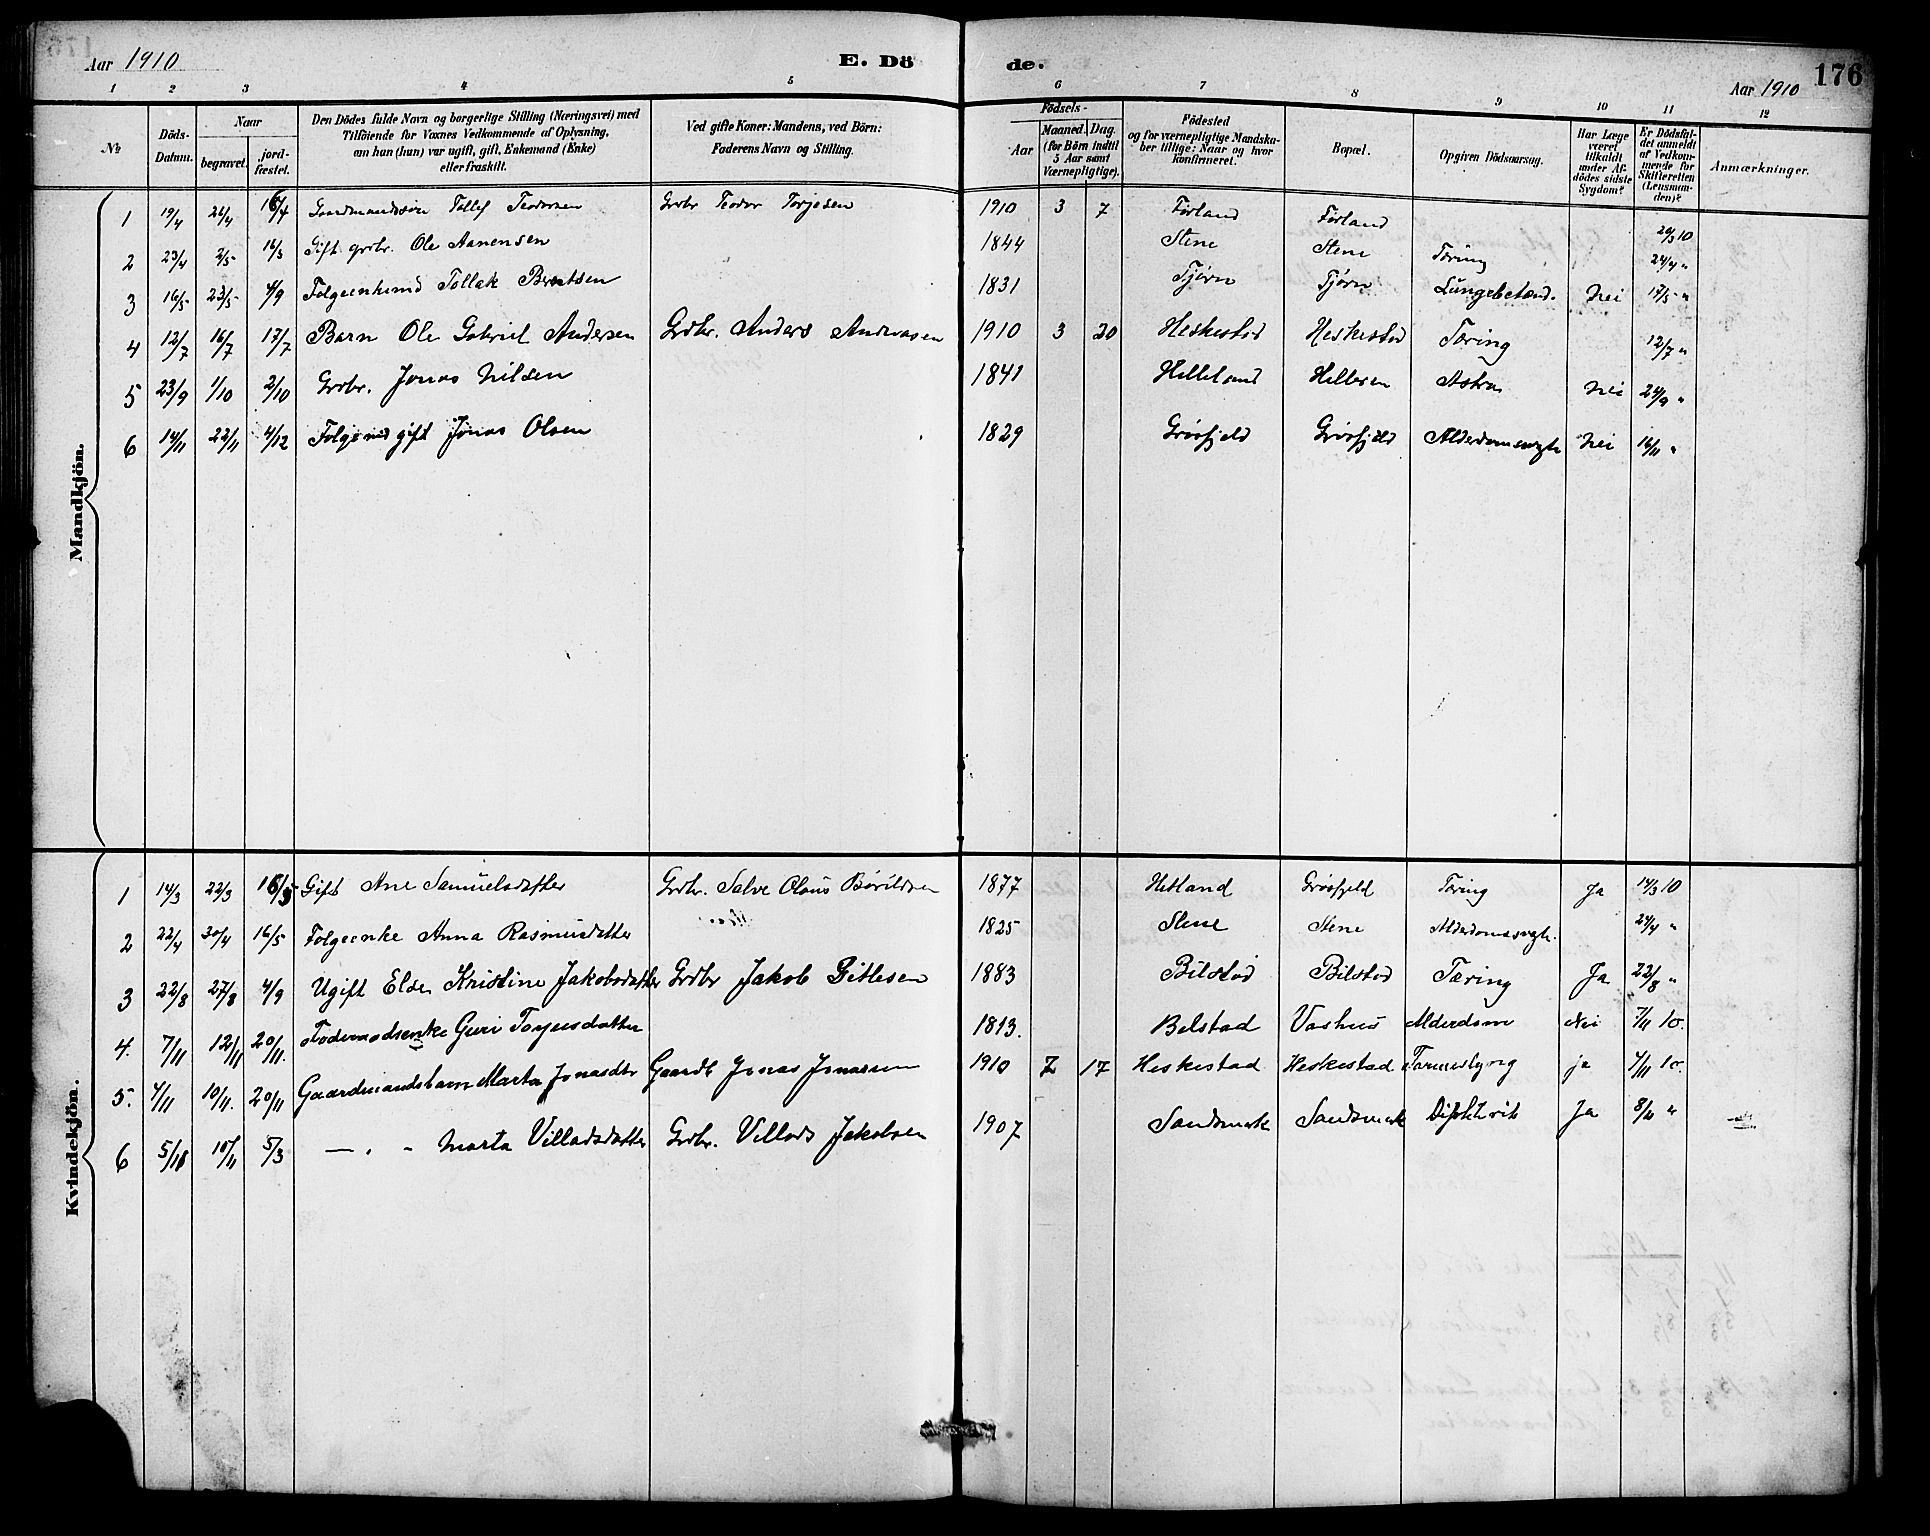 Aar 1910 E. Dö de. Aar 1910 176
1 2 3 4 5 6 7 8 9 10 11 12
№ Döds-Datum. Naar begravet. jord-fæstet. Den Dödes fulde Navn og borgerlige Stilling (Næringsvei) med Tilföiende for Voxnes Vedkommende af Oplysning, om han (hun) var ugift, gift, Enkemand (Enke) eller fraskilt. Ved gifte Koner: Mandens, ved Börn: Faderens Navn og Stilling. Födsels- Aar Maaned. Dag. (for Börn indtil 5 Aar samt Værnepligtige). Födested og for værnepligtige Mandskaber tillige: Naar og hvor konfirmeret. Bopæl. Opgiven Dödsaarsag. Har Læge været tilkaldt under Afdödes sidste Sygdom? Er Dödsfaldet anmeldt af Vedkommende for Skifteretten (Lensmanden)? Anmærkninger.
Mandkjön.
1 19/4 26/4 16/4 Gaardmandssön Tollef Teodorsen Grdbr Teodor Torjesen 1910 3 7 Förland Förland 20/3 10
2 23/4 2/5 16/5 Gift grdbr. Ole Aanensen 1844 Stene Stene Tæring 24/4 "
3 16/5 23/5 4/9 Folgeenkemd Tollak Berntsen 1831 Tjörn Tjörn Lungebetænd. Nei 17/5 "
4 12/7 16/7 17/7 Barn Ole Gabriel Andersen Grdbr. Anders Andreasen 1910 3 20 Heskestad Heskestad Tæring 12/7 "
5 23/9 1/10 2/10 Grdbr. Jonas Nilsen 1841 Helleland Helleren Astma Nei 24/9 "
6 14/11 22/11 4/12 Folgemd gift Jonas Olsen 1829 Grösfjeld Grösfjeld Alderdomssvagh. Nei 16/11 "
Kvindekjön.
1 14/3 22/3 16/5 Gift Ane Samuelsdatter Grdbr. Salve Olaus Börildsen 1877 Hetland Grösfjeld Tæring Ja 14/3 10
2 22/4 30/4 16/5 Folgeenke Anna Rasmusdatter 1825 Stene Stene Alderdomssvagh. 24/4 "
3 22/8 27/8 4/9 Ugift Else Kristine Jakobsdatter Grdbr Jakob Gitlesen 1883 Bilstad Bilstad Tæring Ja 22/8 "
4. 7/11 12/11 20/11. Foderaadsenke Guri Torjusdatter 1813. Belstad Vashus Alderdom Nei 7/11 10.
5. 4/11 10/11. 20/11 Gaardmandsbarn Marta Jonasdtr Gaardb Jonas Jonassen 1910 7 17 Heskestad Heskestad Tarmeslyng ja 4/11 10.
6 5/11 10/11 5/3 — " - Marta Villadsdatter Grdbr. Villads Jakobsen 1907 Sandsmark Sandsmark Difteterit Ja 8/11 "